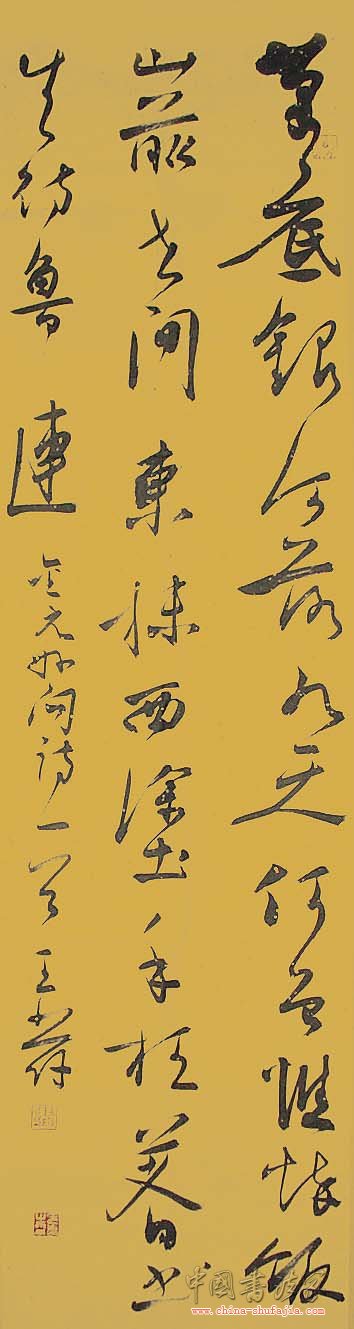 筆底銀河落九天何曾憔悴飯
山前世間東抹西塗手枉著書
生待魯連 金元好問詩一首 王
中國書法家
www.china-shufajia.com